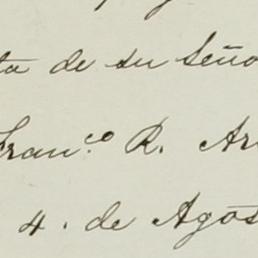 ta de su Seño
Franco. R. Ar
4. de Agos